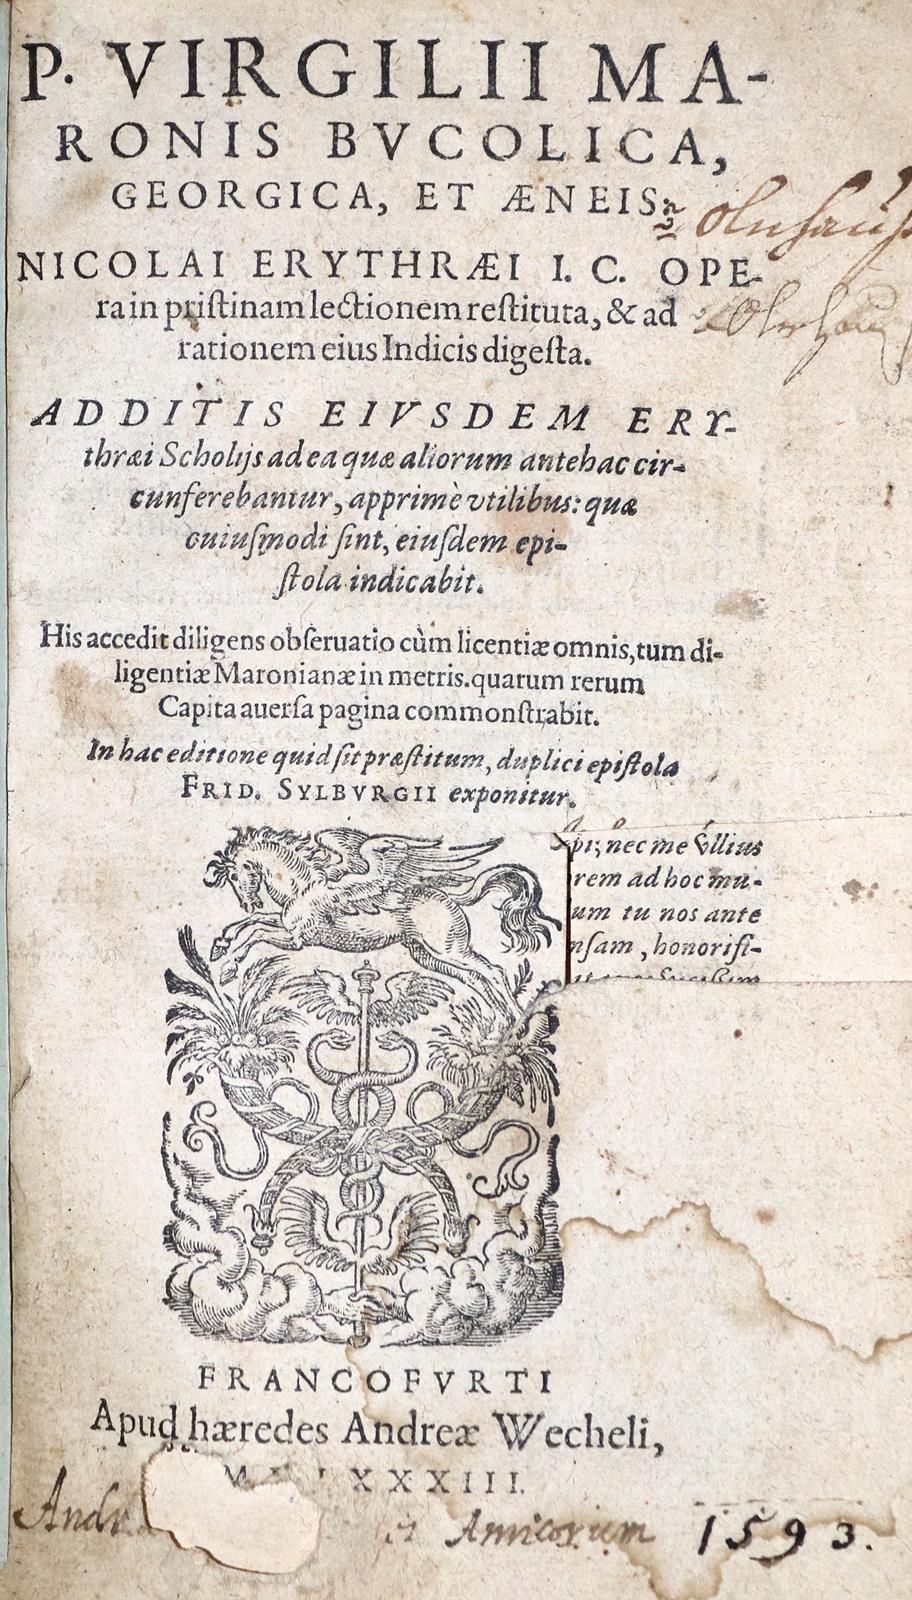 P. VIRGILII MA-
RONIS BVCOLICA,
GEORGICA, ET ÆNEIS:
NICOLAI ERYTHRÆI I. C. OPE-
ra in pristinam lectionem restituta, & ad
rationem eius Indicis digesta.
ADDITIS EIVSDEM ERY-
thræi Scholijs ad ea quæ aliorum antehac cir-
cunferebantur, apprimè vtilibus: quæ
cuiusmodi sint, eiusdem epi-
stola indicabit.
His accedit diligens obseruatio cùm licentiæ omnis, tum di-
ligentiæ Maronianæ in metris. quarum rerum
Capita auersa pagina commonstrabit.
In hac editione quid sit præstitum, duplici epistola
FRID. SYLBVRGII exponitur.
pi; nec me vllius
rem ad hoc mu-
um tu nos ante
nsam, honorifi-
FRANCOFVRTI
Apud hæredes Andreæ Wecheli,
M LXXXIII.
Andr et Amicorum 1593.